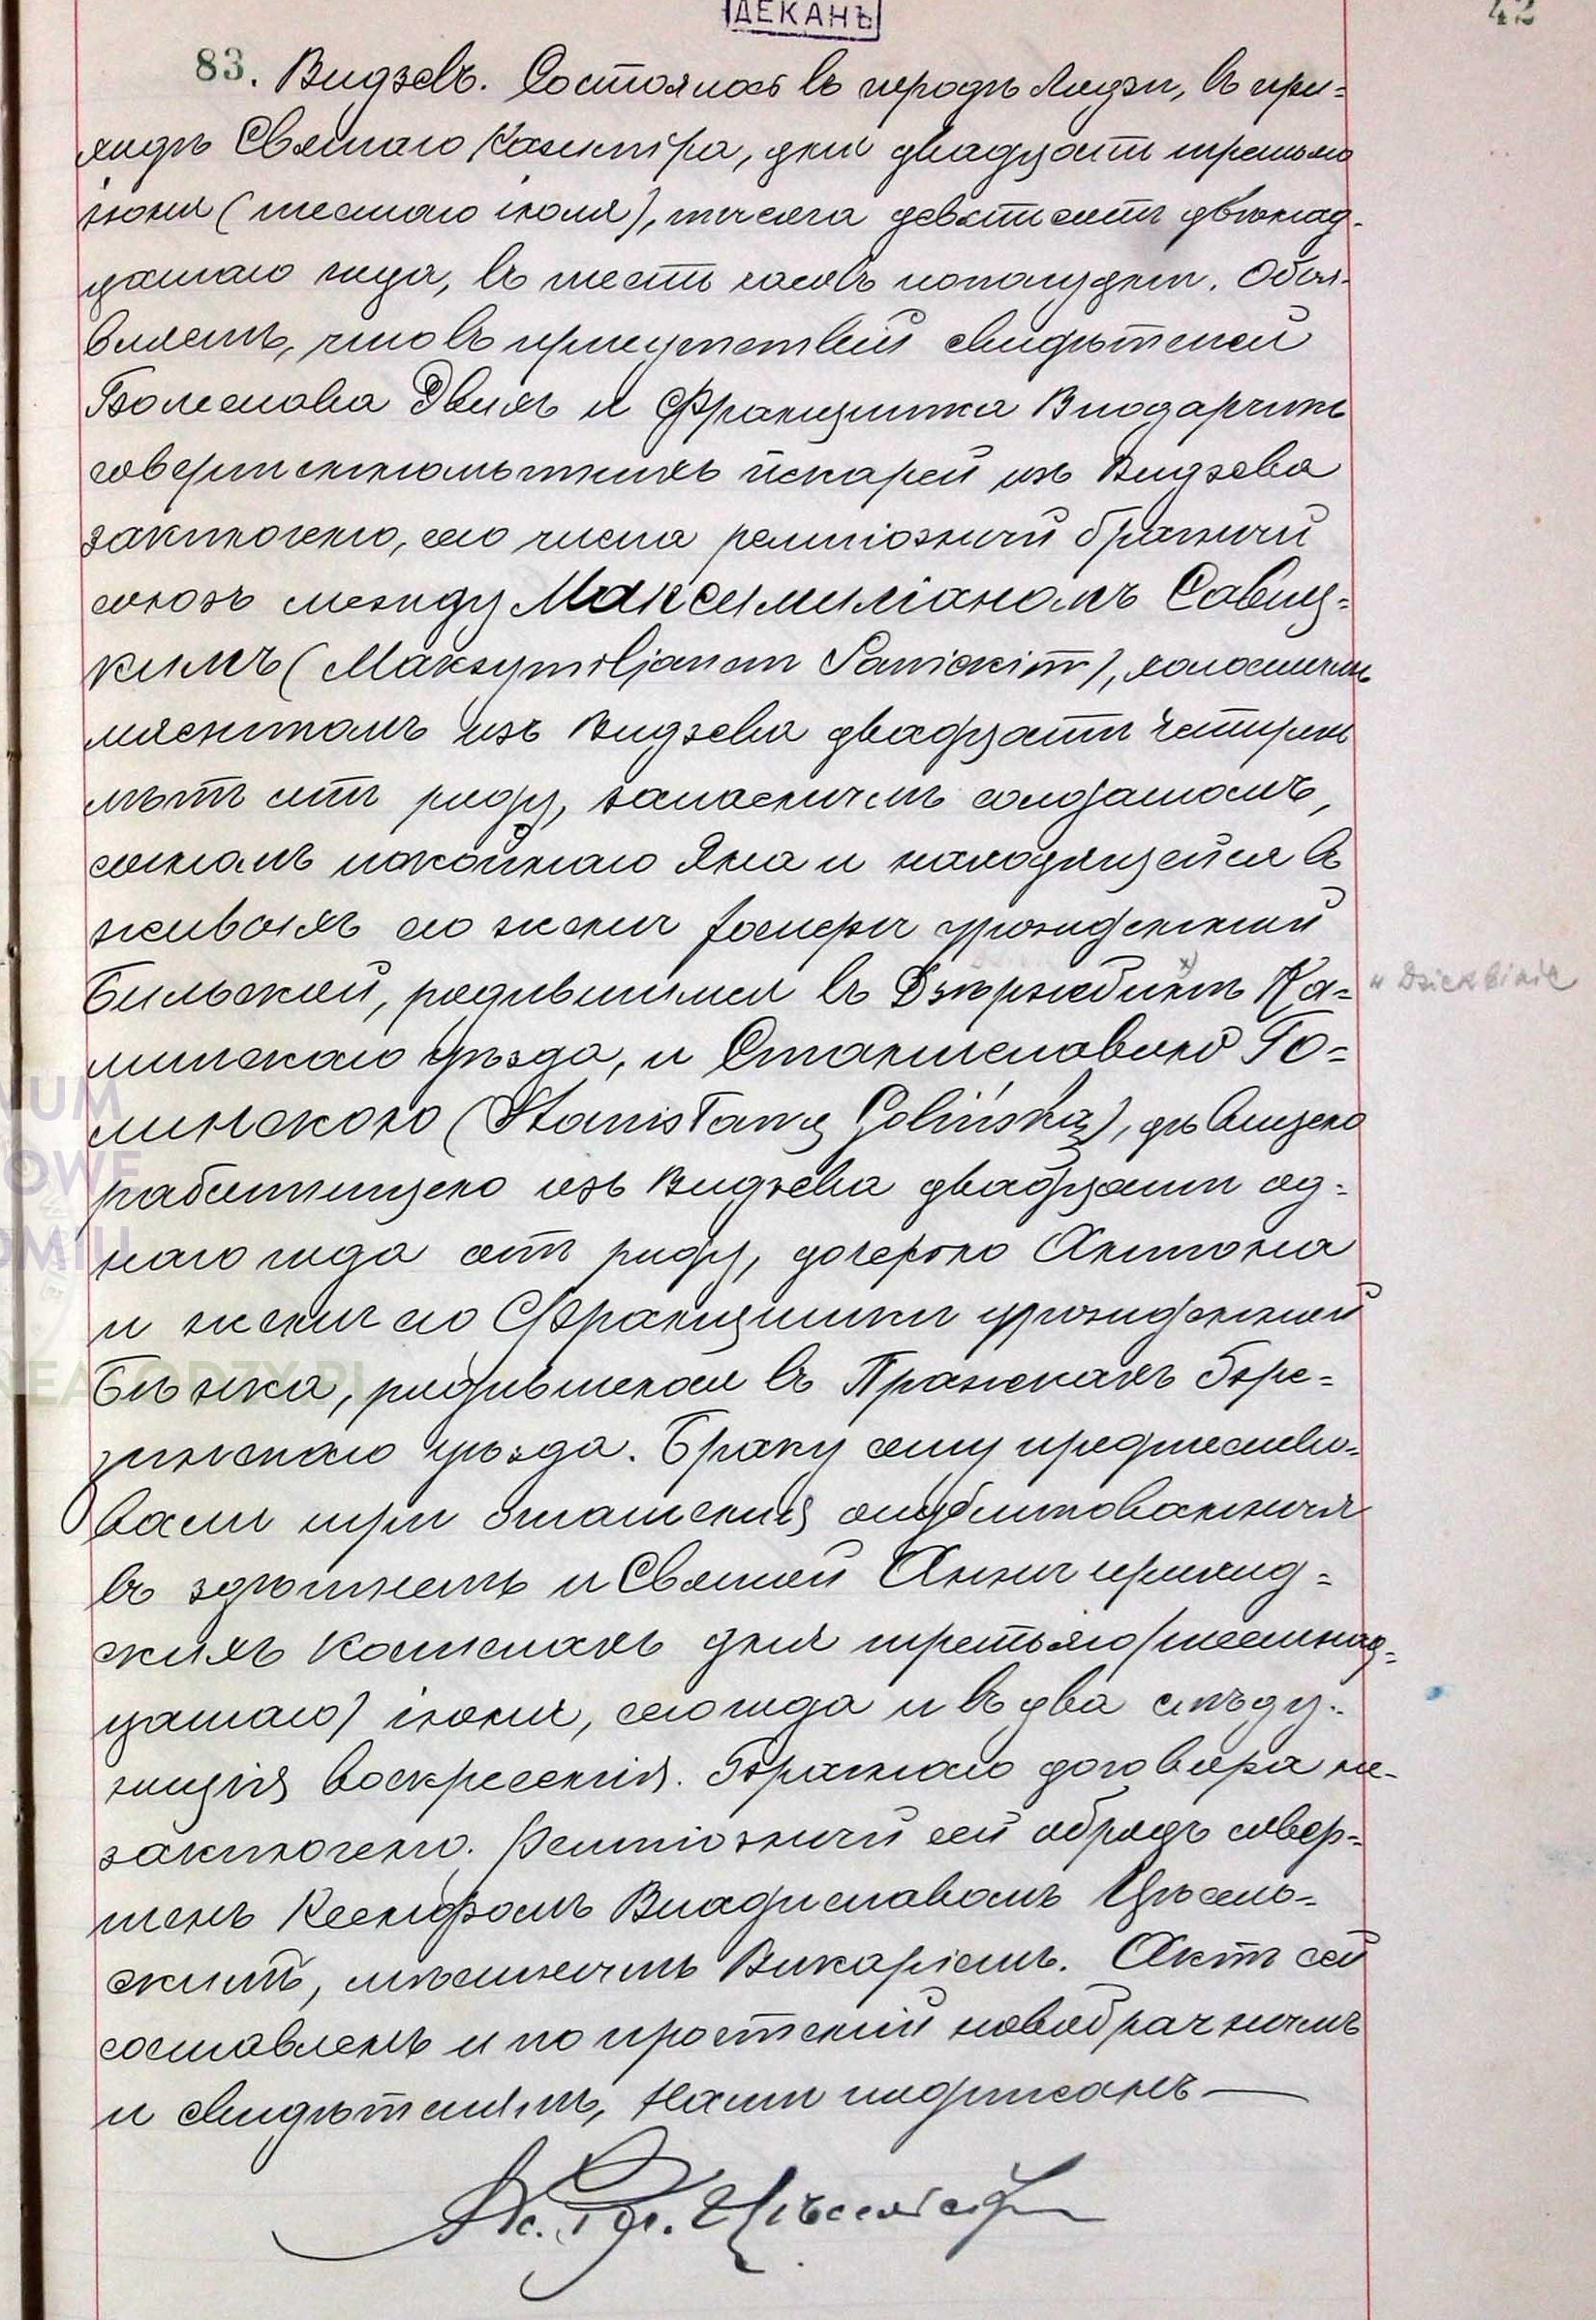 ДЕКАНЪ
42
83. Видзевъ. Состоялось въ городѣ Лодзи, въ при=
ходѣ Святаго Казимира, дня двадцать третьяго
іюня (шестаго іюля), тысяча девятьсотъ двѣнад-
цатаго года, въ шесть часовъ пополудни. Объя-
вляемъ, что въ присутствіи свидѣтелей
Болеслава и Францишка Влодарчикъ
совершеннолѣтнихъ изъ Видзева
заключено, сего числа религіозный брачный
союзъ между Максимиліаномъ Савиц=
кимъ (Maksymiljanem Sawickim), холостымъ
мясникомъ изъ Видзева двадцати четырехъ
лѣтъ отъ роду, запаснымъ солдатомъ,
сыномъ покойнаго Яна и находящейся въ
живыхъ его жены Юзефы урожденной
Бильской, родившимся въ Дзержбинѣ x) Ка=
лишскаго уѣзда, и Станиславою Го=
линскою (Stanisławą Golińską), дѣвицею
работницею изъ Видзева двадцати од=
ного года отъ роду, дочерью Антона
и жены его Францишки урожденной
родившеюся въ Пражкахъ Бре=
зинскаго уѣзда. Браку сему предшество-
вали три оглашенія опубликованныя
въ здѣшнемъ и Святой Анны приход=
скихъ костелахъ дня третьяго (шестнад=
цатаго) іюня, сего года и въ два слѣду-
ющія воскресенія. Брачнаго договора не-
заключено. Религіозный сей обрядъ совер=
шенъ Ксендзомъ Владиславомъ Цѣсель=
скимъ, мѣстнымъ Викаріемъ. Актъ сей
составленъ и по прочтеніи новобрачнымъ
и свидѣтелямъ, Нами подписанъ —
Кс. Вл. Цѣсельскій